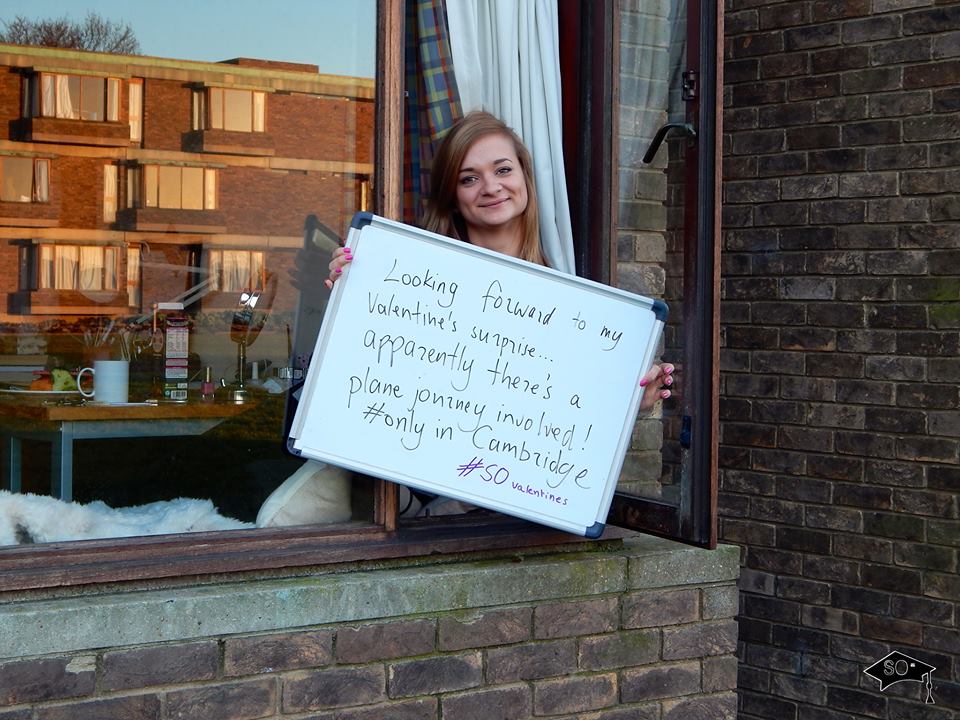 Looking forward to my
Valentine's surprise...
apparently there's a
plane journey involved!
#only in Cambridge
#SO valentines
SO